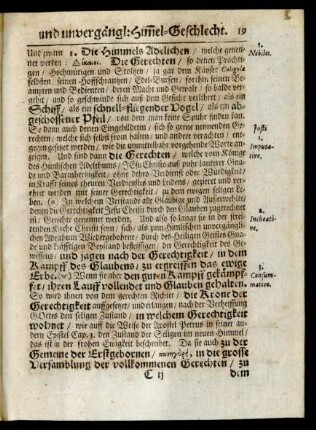 und unvergängl: Him̃el-Geschlecht. 19
Und zwarn 1. Die Himmels Adelichen / welche genen-
net werden: Δίκαιοι. Die Gerechten / so denen Prächti-
gen / Hochmütigen und Stoltzen / ja gar dem Käyser Caligula
selbsten, seinen Hoffschrantzen, Edel-Bursen / sonsten seinen Be-
ampten und Bedienten / deren Macht und Gewalt / so bald verge-
het, und so geschwinde sich auß dem Gesicht verliehrt / als ein
Schiff / als ein schnell-fliegender Vogel / als ein ab-
geschossener Pfeil / von dem man keine Spuhr finden kan.
So dann auch denen Eingebildeten / sich so gerne nennenden Ge-
rechten / welche sonst sich selbst fromm halten / und andere verachten / ent-
gegen gesetzet werden / wie die unmittelbahr vorgehende Worte an-
zeigen. Und sind dann die Gerechten / welche vom Könige
deß Him̃lischen Adelthums / JEsu Christo auß puhr lauterer Gnad
und Barmhertzigkeit / ohne dehro Verdienst oder Würdigkeit /
in Krafft seines theuren Verdienstes und Leidens / geziert und ver-
ehret werden mit seiner Gerechtigkeit / zu dem ewigen seligen Le-
ben. In welchem Verstande alle Glaubige und Außerwehlte /
denen die Gerechtigkeit JEsu Christi durch den Glauben zugerechnet
ist / Gerechte genennet werden. Und also so lange sie in der strei-
tenden Kirche Christi seyn / sich / als zum himlischen unvergänglichen
Adelthum Wiedergebohrne / durch deß Heiligen Geistes Gnade
und kräfftigen Beystand befleissigen / der Gerechtigkeit des Ge-
wissens / und jagen nach der Gerechtigkeit, in dem
Kampff des Glaubens / zu ergreiffen das ewige
Erbe. Wann sie aber den guten Kampff gekämpf-
fet / ihren Lauff vollendet und Glauben gehalten.
So wird ihnen von dem gerechten Richter / die Krone der
Gerechtigkeit auffgesetzet / und erlangen / nach der Verheissung
GOttes den seligen Zustand / in welchem Gerechtigkeit
wohnet / wie auff die Weise der Apostel Petrus in seiner an-
dern Epistel Cap. 3. den Zustand der Seligen im neuen Himmel /
das ist in der frohen Ewigkeit beschreibet. Da sie auch zu der
Gemeine der Erstgebornen / πανηγύρει, in die grosse
Versamblung der vollkommenen Gerechten / zu
C ij dem
1.
Nobiles.
Justi
1.
Imputa-
tive.
2.
Inchoati-
ve.
3.
Consum-
mative.